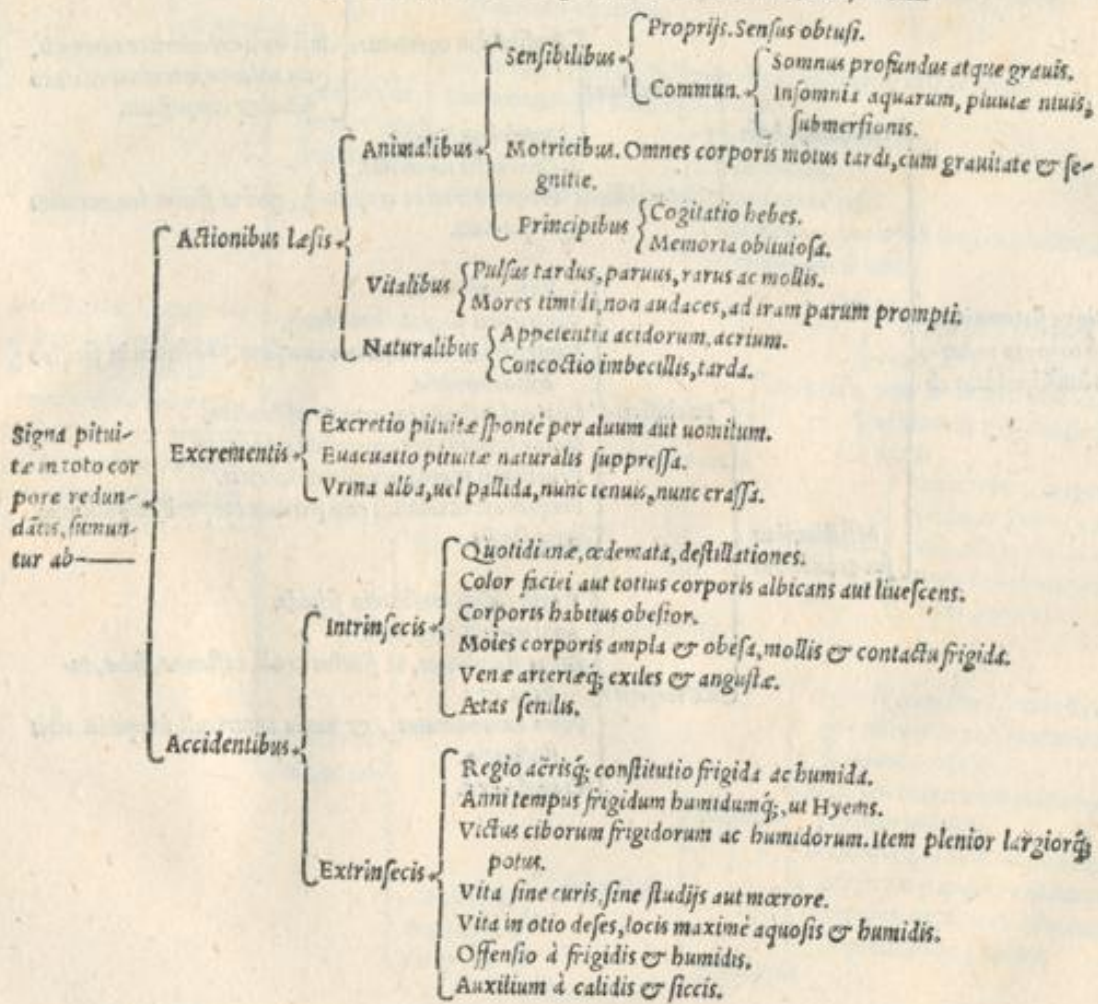 Proprijs. Sensus obtusi.
Sensibilibus
Somnus profundus atque grauis.
Commun.
Insomnia aquarum, pluuiæ niuis,
submersionis.
Animalibus
Motricibus. Omnes corporis motus tardi, cum grauitate & se-
gnitie.
Principibus
Cogitatio hebes.
Memoria obliuiosa.
Actionibus læsis
Vitalibus
Pulsus tardus, paruus, rarus ac mollis.
Mores timidi, non audaces, ad iram parum prompti.
Naturalibus
Appetentia acidorum, acrium.
Concoctio imbecillis, tarda.
Signa pitui-
tæ in toto cor
pore redun-
dãtis, sumun-
tur ab
Excrementis
Excretio pituitæ spontè per aluum aut uomitum.
Euacuatio pituitæ naturalis suppressa.
Vrina alba, uel pallida, nunc tenuis, nunc crassa.
Accidentibus
Intrinsecis
Quotidianæ, œdemata, destillationes.
Color faciei aut totius corporis albicans aut liuescens.
Corporis habitus obesior.
Moles corporis ampla & obesa, mollis & contactu frigida.
Venæ arteriæq; exiles & angustæ.
Aetas senilis.
Extrinsecis
Regio aërisq́; constitutio frigida ac humida.
Anni tempus frigidum humidumq́;, ut Hyems.
Victus ciborum frigidorum ac humidorum. Item plenior largiorq́;
potus.
Vita sine curis, sine studijs aut mœrore.
Vita in otio deses, locis maximè aquosis & humidis.
Offensio à frigidis & humidis.
Auxilium à calidis & siccis.